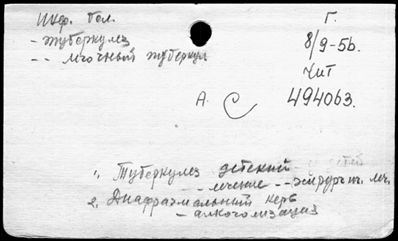 Инф. бол.
- туберкулез
- - легочный туберкул
Г.
8/9-56.
Чит
А. С
494063.
1, Туберкулез детский
- лечение -- хирург. леч.
2, Диафрагмальный нерв
- алкоголизация